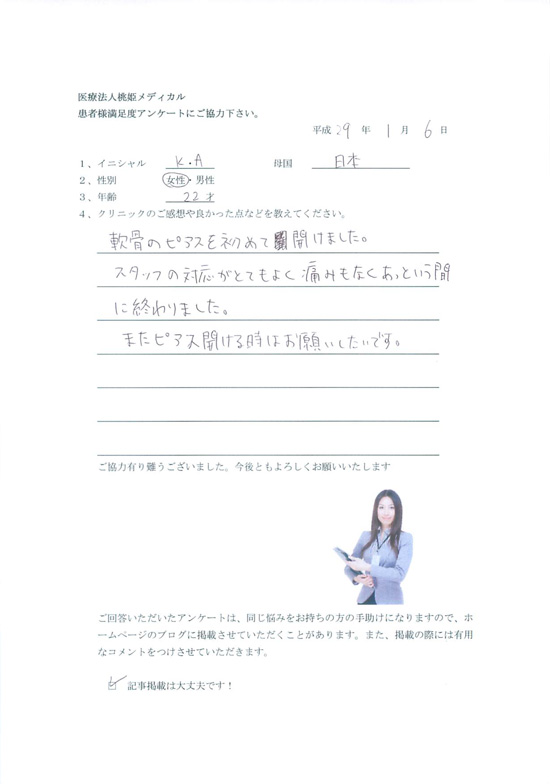 医療法人桃姫メディカル
患者様満足度アンケートにご協力下さい。
平成 29 年 1 月 6 日
1、イニシャル K・A 母国 日本
2、性別 女性・男性
3、年齢 22 才
4、クリニックのご感想や良かった点などを教えてください。
軟骨のピアスを初めて開けました。
スタッフの対応がとてもよく痛みもなくあっという間
に終わりました。
またピアス開ける時はお願いしたいです。
ご協力有り難うございました。今後ともよろしくお願いいたします
ご回答いただいたアンケートは、同じ悩みをお持ちの方の手助けになりますので、ホ
ームページのブログに掲載させていただくことがあります。また、掲載の際には有用
なコメントをつけさせていただきます。
☑ 記事掲載は大丈夫です！